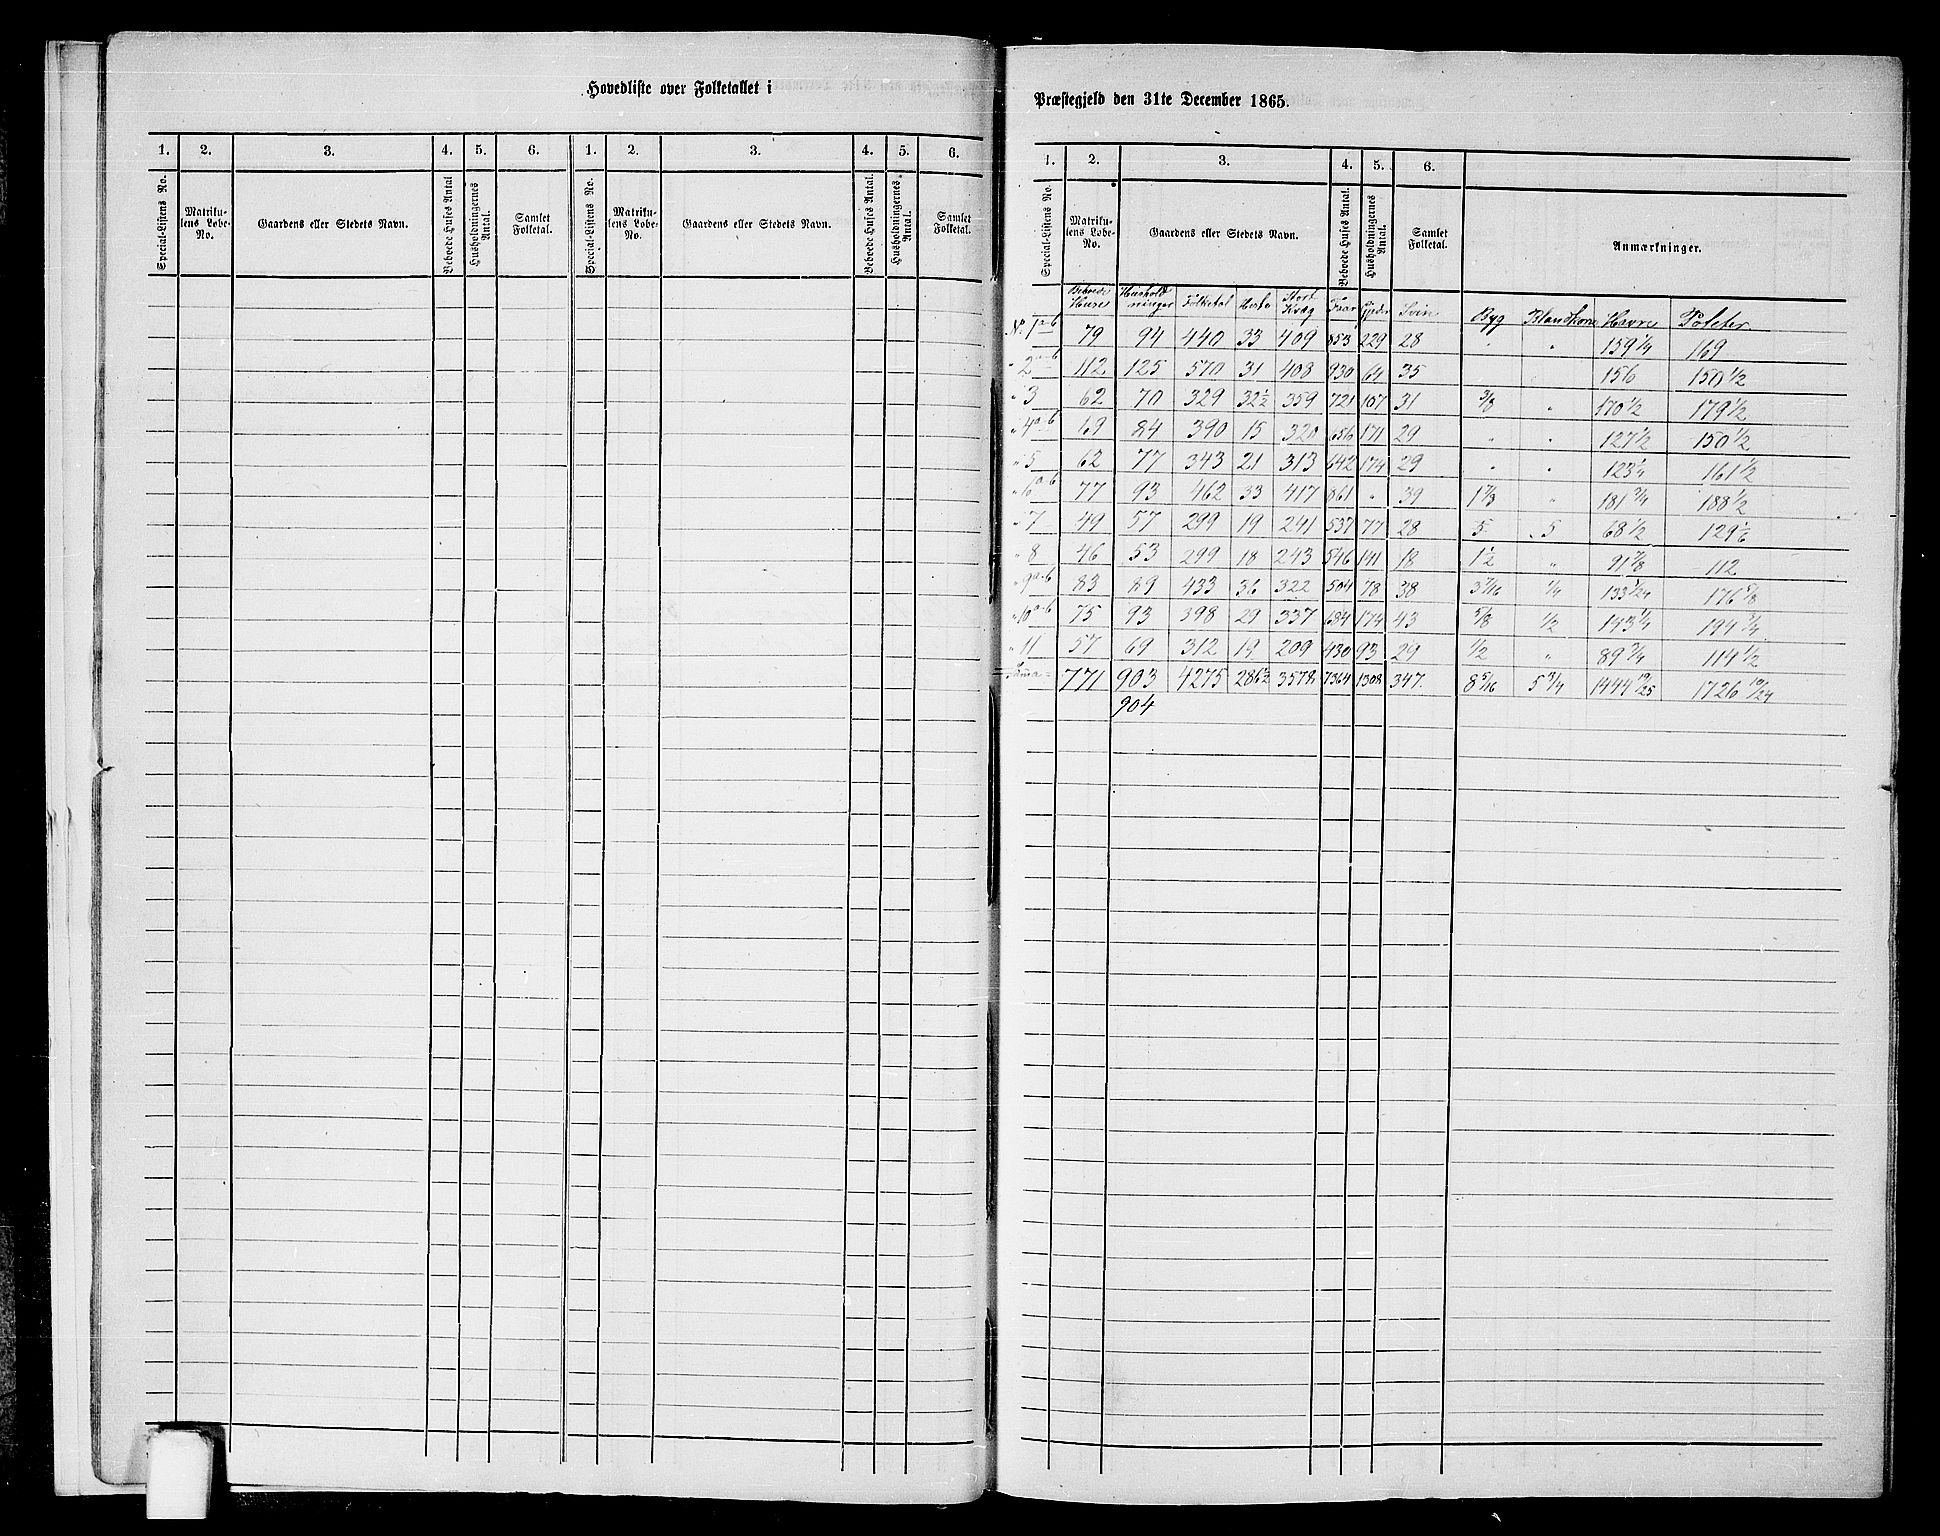 Hovedliste over Folketallet i
1. 2. 3. 4. 5. 6. 1. 2. 3. 4. 5. 6.
Special-Listens No. Matrikulens Løbe-No. Gaardens eller Stedets Navn. Beboede Huses Antal Husholdningernes Antal. Samlet Folketal. Special-Listens No. Matrikulens Løbe-No. Gaardens eller Stedets Navn. Beboede Huses Antal. Husholdningernes Antal. Samlet Folketal.
Præstegjeld den 31te December 1865.
1. 2. 3. 4. 5. 6.
Special-Listens No. Matrikulens Løbe-No. Gaardens eller Stedets Navn. Beboede Huses Antal. Husholdningernes Antal. Samlet Folketal. Anmærkninger.
Beboede Huse Hushold ninger Folketal Heste Stort Kvæg Faar Gjeder Svin Byg Blandkorn Havre Poteter
No 1 a-b 79 94 440 33 409 853 229 28 " " 159 1/4 169
" 2 a-b 112 125 570 31 408 930 64 35 156 150 1/2
" 3 62 70 329 32 1/2 359 721 107 31 3/8 " 170 1/2 179 1/2
" 4 a-b 69 84 390 15 320 656 171 29 " " 127 1/2 150 1/2
" 5 62 77 343 21 313 642 174 29 " " 123 1/4 161 1/2
" 6 a-b 77 93 462 33 417 861 " 39 1 7/8 " 181 3/4 188 1/2
" 7 49 57 299 19 241 537 77 28 5 5 68 1/2 129 1/6
" 8 46 53 299 18 243 546 141 18 1 1/2 " 91 7/8 112
" 9 a-b 83 89 433 36 322 504 78 38 3 7/16 1/4 133 1/24 176 5/8
" 10 a-b 75 93 398 29 337 684 174 43 5/8 1/2 143 1/4 194 3/4
" 11 57 69 312 19 209 430 93 29 1/2 " 89 3/4 114 1/2
Suma 771 903 4275 286 1/2 3578 7364 1308 347. 8 5/16 5 3/4 1444 19/25 1726 10/24
904